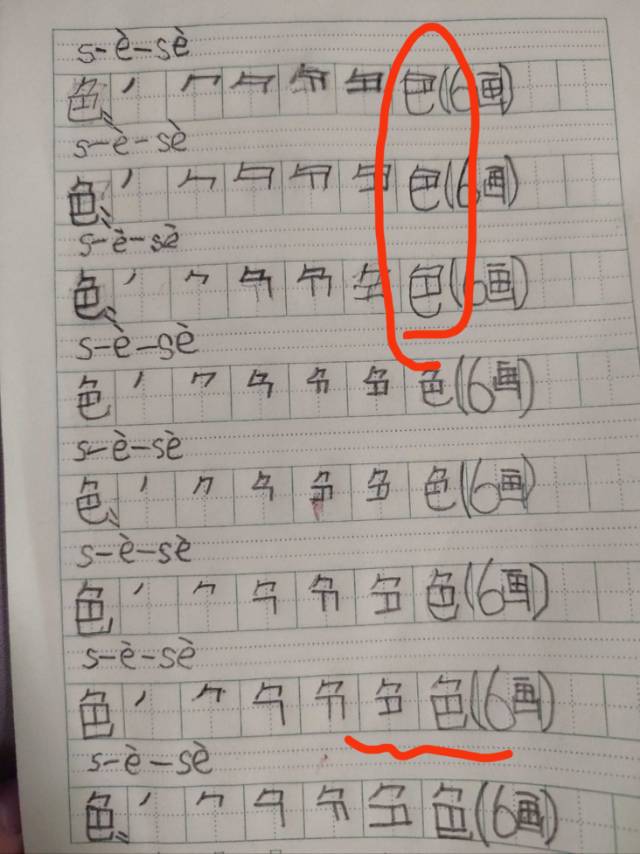 s-è-sè
色 丿 ⺈ 色(6画)
s-è-sè
色 丿 ⺈ 色(6画)
s-è-sè
色 丿 ⺈ 色(6画)
s-è-sè
色 丿 ⺈ 色(6画)
s-è-sè
色 丿 ⺈ 色(6画)
s-è-sè
色 丿 ⺈ 色(6画)
s-è-sè
色 丿 ⺈ 色(6画)
s-è-sè
色 丿 ⺈ 色(6画)